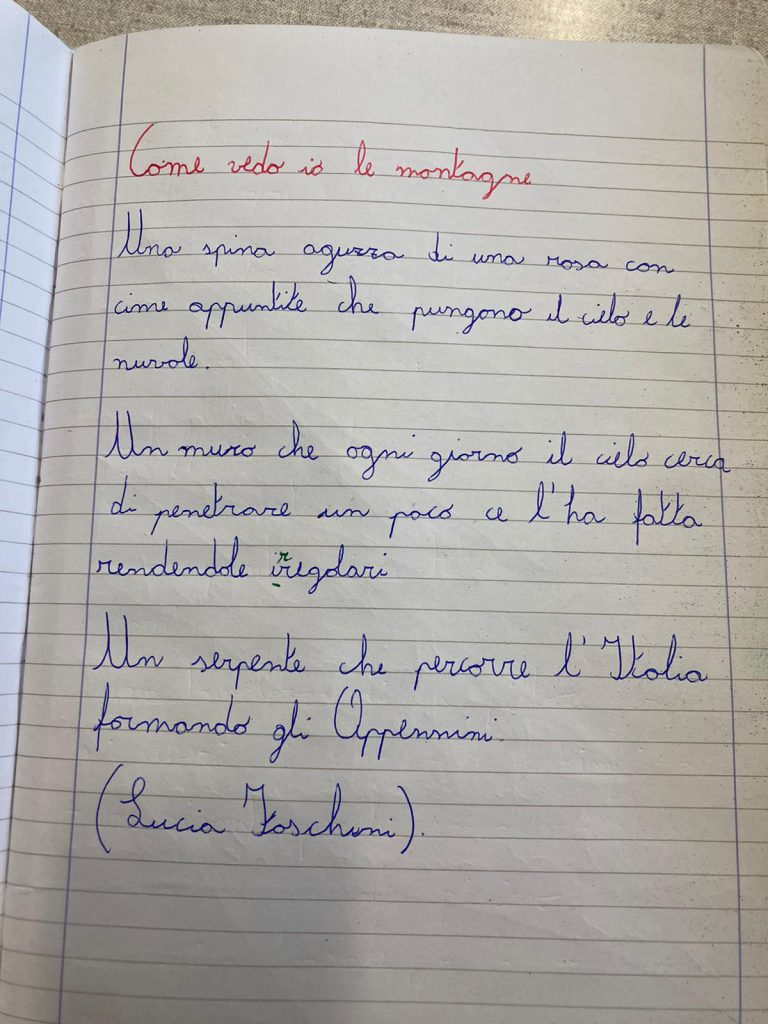 Come vedo io le montagne
Una spina aguzza di una rosa con
cime appuntite che pungono il cielo e le
nuvole.
Un muro che ogni giorno il cielo cerca
di penetrare un poco ce l'ha fatta
rendendole irregolari
Un serpente che percorre l'Italia
formando gli Appennini.
(Lucia Foschini).